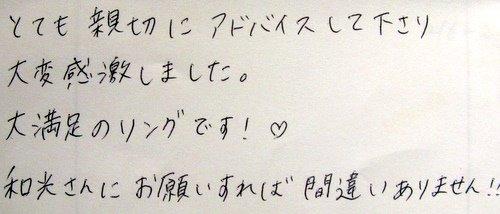 とても親切にアドバイスして下さり
大変感激しました。
大満足のリングです!♡
和光さんにお願いすれば間違いありません!!